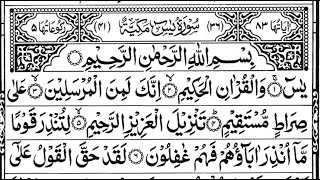 اٰیَاتُهَا ٨٣ (٣٦) سُوْرَةُ يٰسٓ مَكِّيَّةٌ (٤١) رُكُوْعَاتُهَا ٥
بِسْمِ اللّٰهِ الرَّحْمٰنِ الرَّحِيْمِ
يٰسٓ ۚ وَالْقُرْاٰنِ الْحَكِيْمِ ۙ اِنَّكَ لَمِنَ الْمُرْسَلِيْنَ ۙ عَلٰى
صِرَاطٍ مُّسْتَقِيْمٍ ۭ تَنْزِيْلَ الْعَزِيْزِ الرَّحِيْمِ ۙ لِتُنْذِرَ قَوْمًا
مَّاۤ اُنْذِرَ اٰبَآؤُهُمْ فَهُمْ غٰفِلُوْنَ ۝ لَقَدْ حَقَّ الْقَوْلُ عَلٰۤى